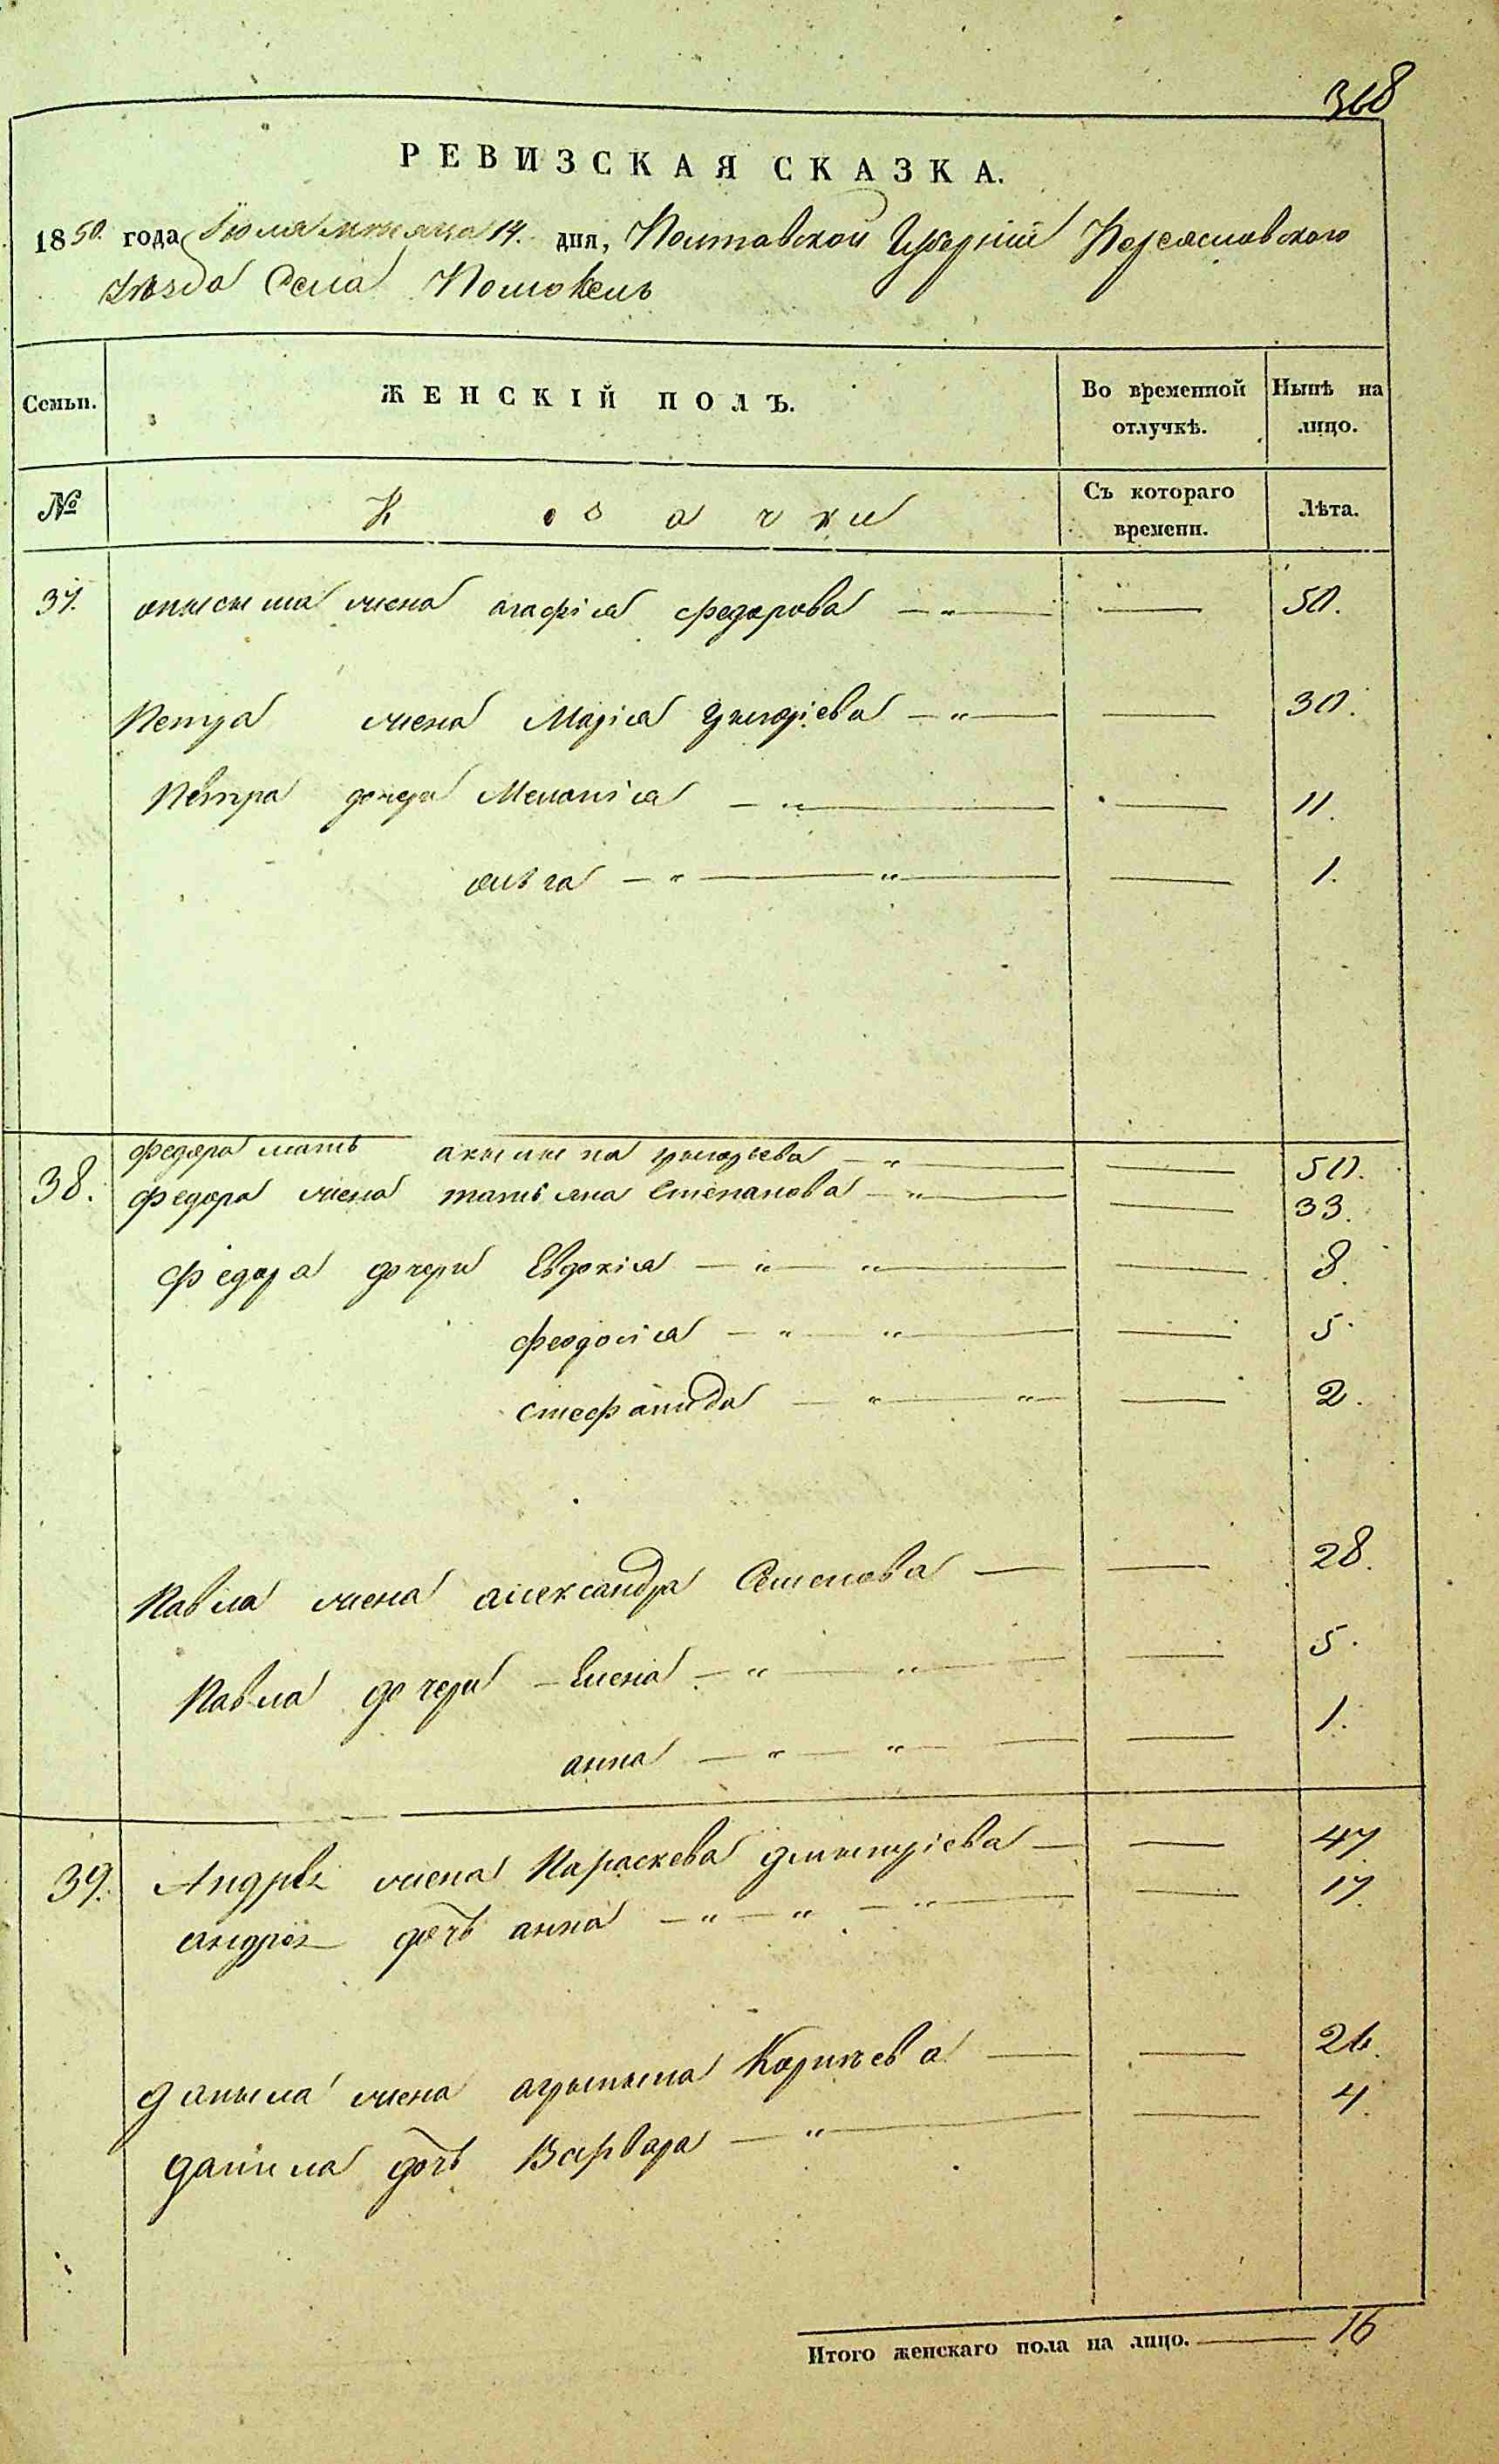 368
РЕВИЗСКАЯ СКАЗКА.
1850. года Іюля мѣсяца 14. дня, Полтавской Губерніи Переяславского
уѣзда Села Помокель
Семьи. ЖЕНСКІЙ ПОЛЪ. Во временной отлучкѣ. Нынѣ на лицо.
№ Козачки Съ котораго времени. Лѣта.
37. онысыма жена агафія федорова — „ — — 50.
Петра жена Марія григоріева — „ — — 30.
Петра дочери Меланія — „ — — 11.
олѣга — „ — „ — — 1.
38. федора мать акылына григорьева — „ — — 50.
федора жена татьяна Степанова — „ — — 33.
федора дочери Евдокія — „ — „ — — 8.
феодосія — „ — „ — — 5.
стефанида — „ — „ — — 2.
Павла жена александра Семенова — — 28.
Павла дочери — Елена — „ — „ — — 5.
анна — „ — „ — — 1.
39. Андрѣя жена Параскева дмытріева — — 47
андрея дочь анна — „ — „ — „ — — 17.
даныла жена агрыпына Корнѣева — — 26.
данила дочь Варвара — „ — — 4.
Итого женскаго пола на лицо. — 16